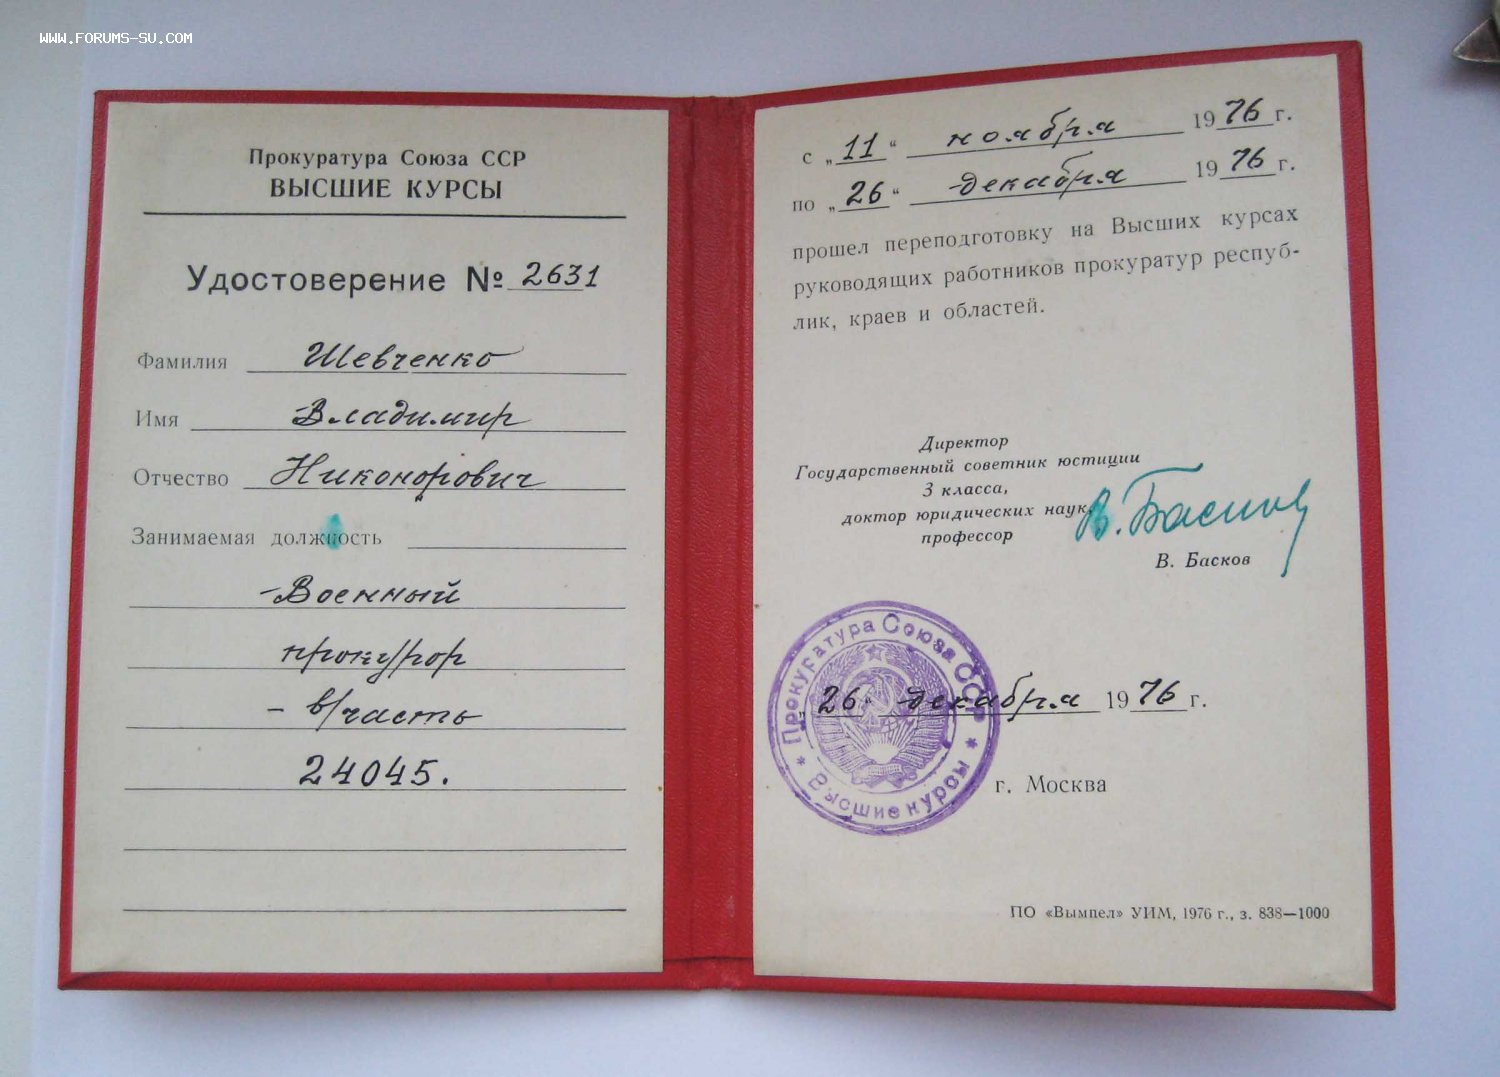 WWW.FORUMS-SU.COM
Прокуратура Союза ССР
ВЫСШИЕ КУРСЫ
Удостоверение № 2631
Фамилия Шевченко
Имя Владимир
Отчество Никонорович
Занимаемая должность
Военный
прокурор
- в/часть
24045.
с „11“ ноября 1976 г.
по „26“ декабря 1976 г.
прошел переподготовку на Высших курсах
руководящих работников прокуратур респуб-
лик, краев и областей.
Директор
Государственный советник юстиции
3 класса,
доктор юридических наук,
профессор
В. Басков
В. Басков
Прокуратура Союза ССР
* Высшие курсы *
„26“ декабря 1976 г.
г. Москва
ПО «Вымпел» УИМ, 1976 г., з. 838—1000